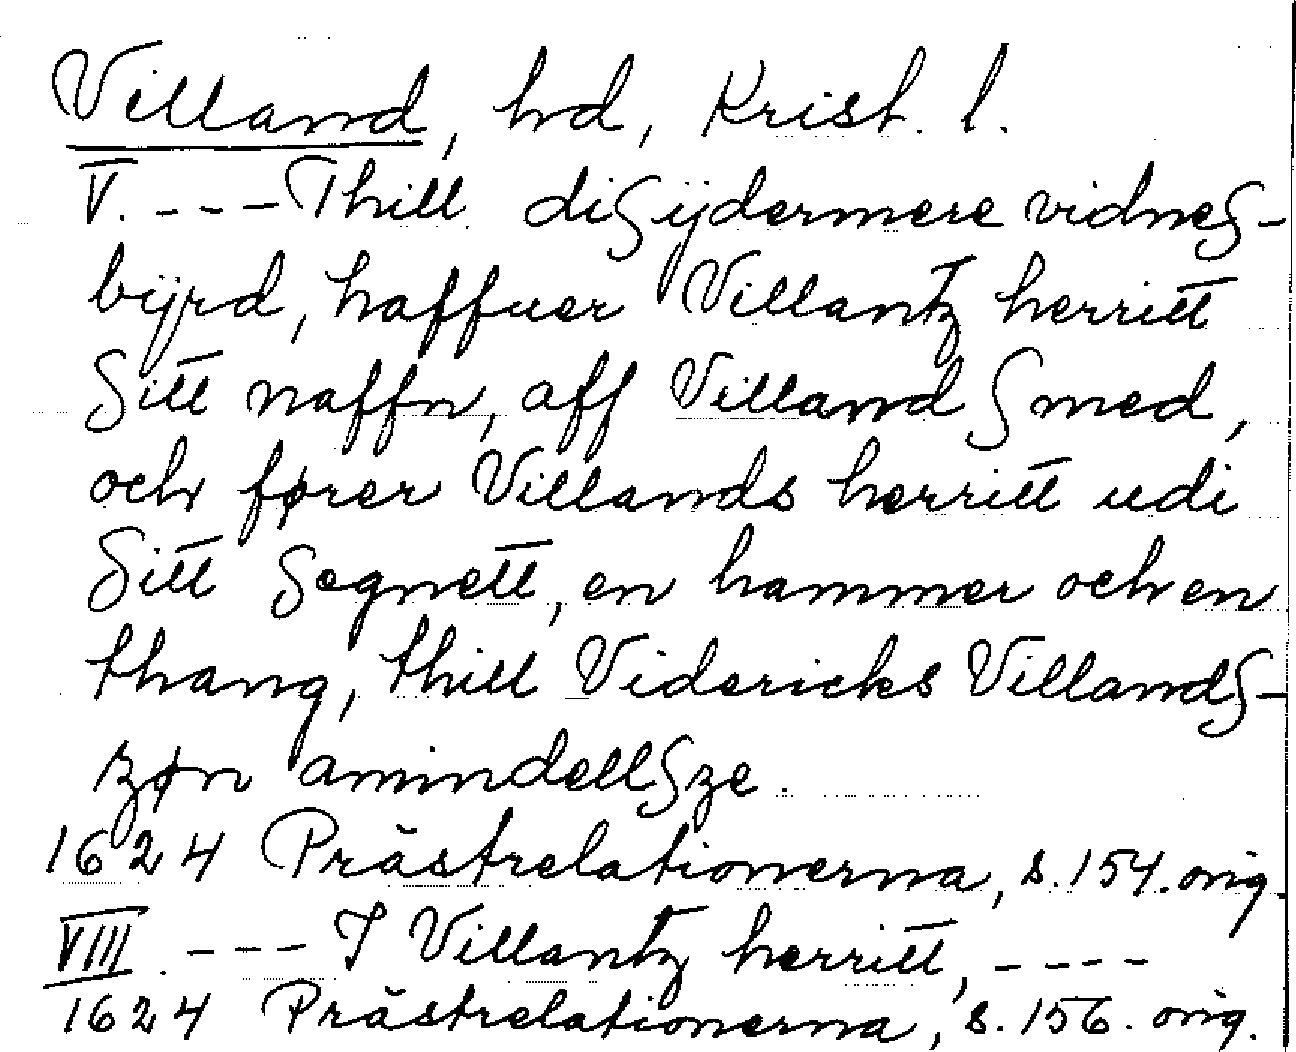 Villand, hd, Krist. l.
V. - - - Thill diß ijdermere vidneß-
bijrd, haffuer Villantz herritt
Sitt naffn, aff Villand Smed,
och fører Villands herritt udi
Sitt Segnett, en hammer och en
thang, thill Videricks Villandß-
zøn amindellßze.
1624 Prästrelationerna, s. 154. orig.
VIII. - - - I Villantz herritt, - - - -
1624 Prästrelationerna, s. 156. orig.